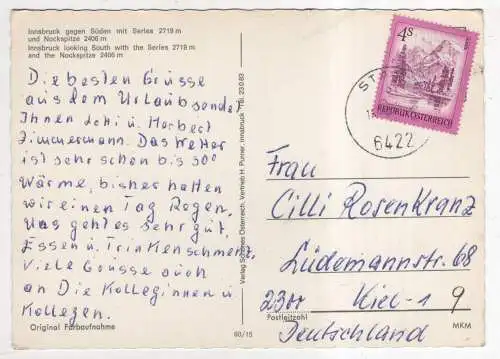 Innsbruck gegen Süden mit Serles 2719 m
und Nockspitze 2406 m
Innsbruck looking South with the Serles 2719 m
and the Nockspitze 2406 m
Die besten Grüsse
aus dem Urlaub sendet
Ihnen u. Herbert
Zimmermann. Das Wetter
ist sehr schön bis 30°
Wärme, bisher hatten
wir einen Tag Regen.
Uns geht es sehr gut,
Essen u. Trinken schmeckt.
Viele Grüsse auch
an Die Kolleginnen u
Kollegen.
Original Farbaufnahme
60/15
Verlag Schönes Österreich, Vertrieb H. Purner, Innsbruck Tel. 23 0 83
4S
REPUBLIK ÖSTERREICH
ST
6422
Frau
Cilli RosenKranz
Lüdemannstr. 68
2300 Kiel-1 9
Postleitzahl
Deutschland
MKM